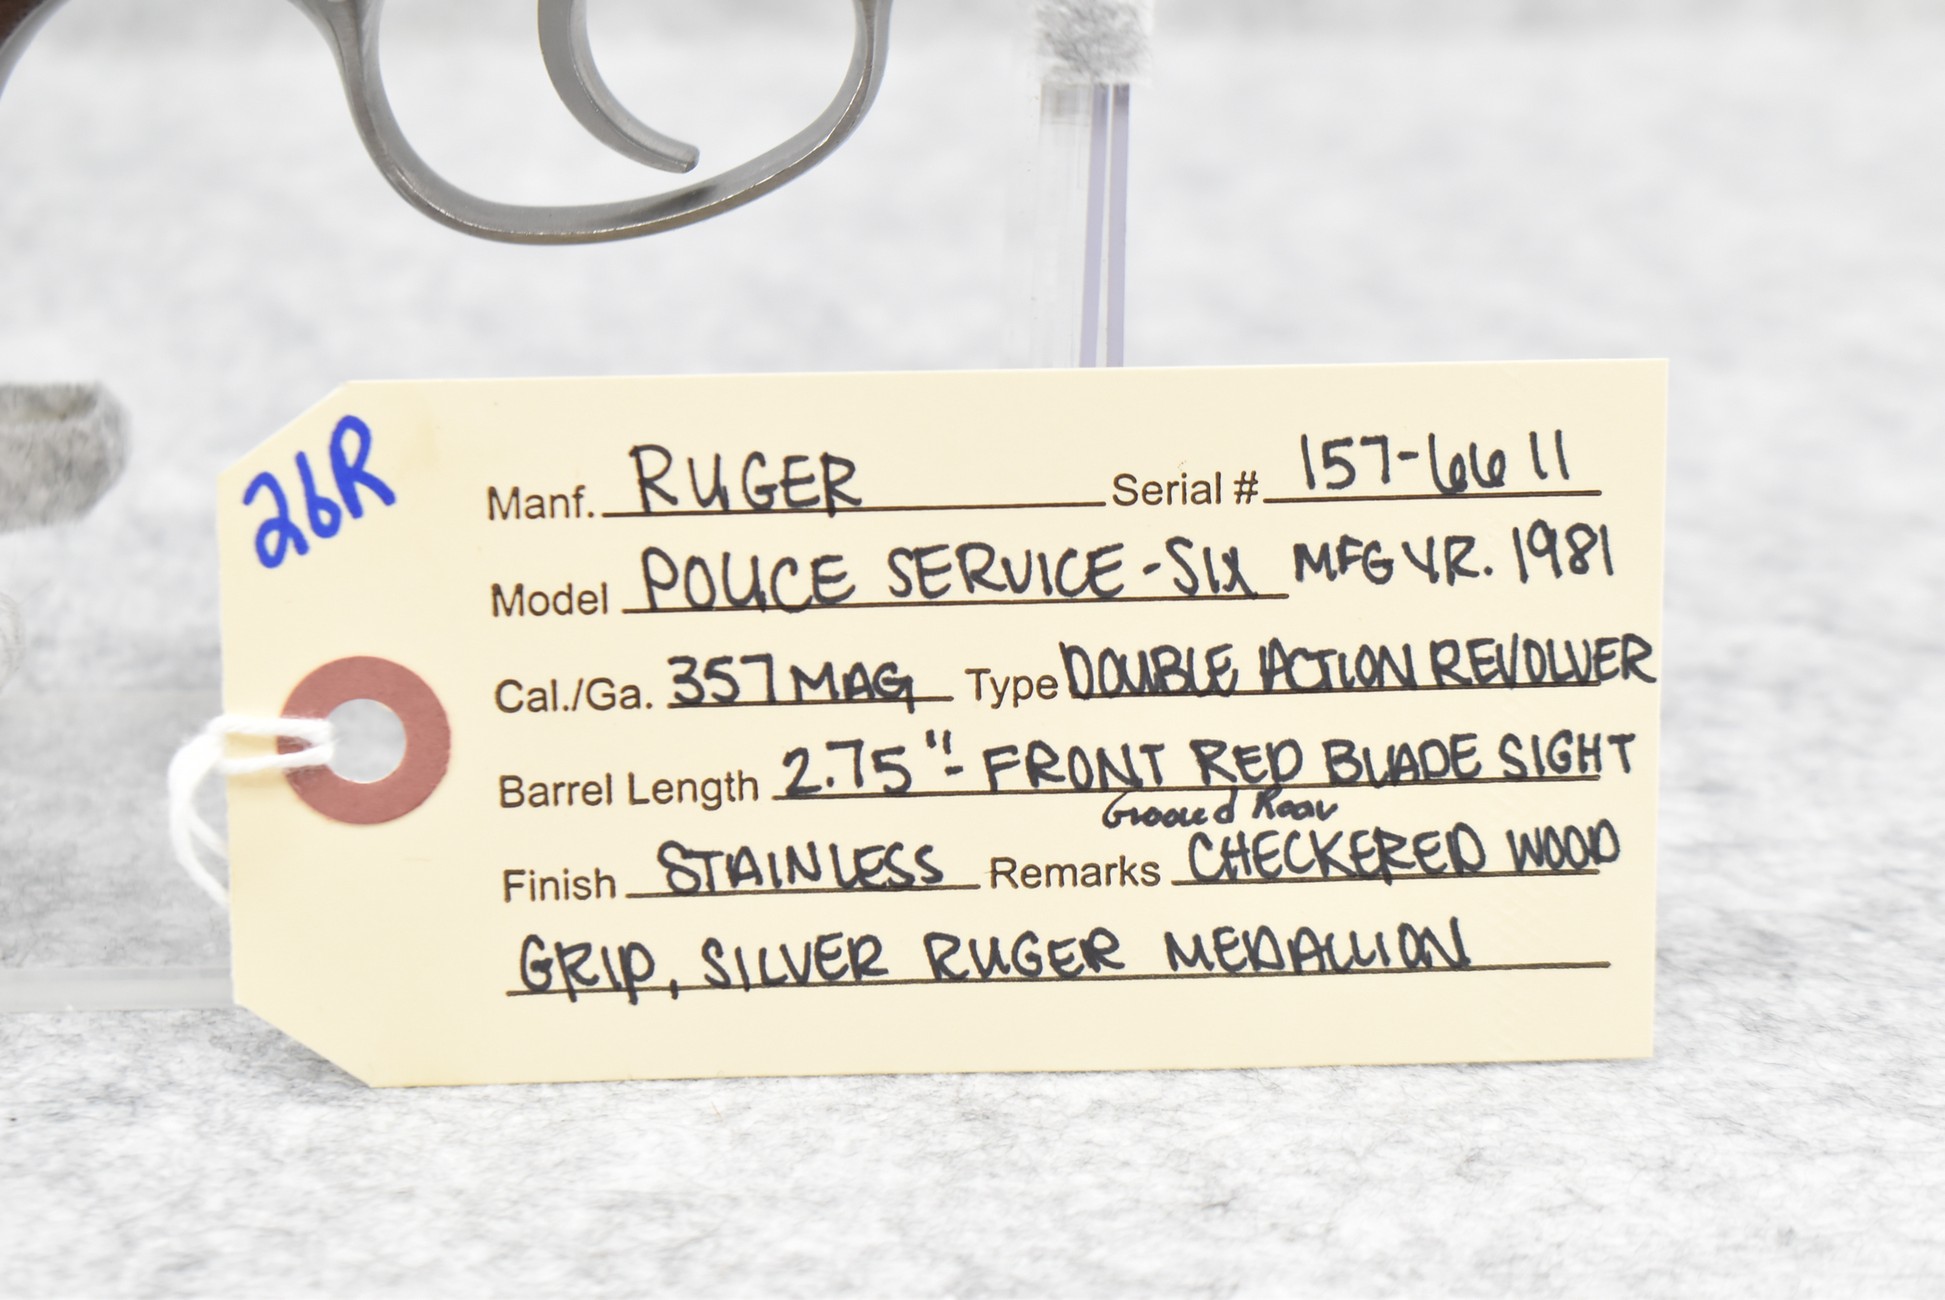 26R
Manf. RUGER Serial # 157-6611
Model POLICE SERVICE-SIX MFG YR. 1981
Cal./Ga. 357 MAG Type DOUBLE ACTION REVOLVER
Barrel Length 2.75"- FRONT RED BLADE SIGHT
Grooved Rear
Finish STAINLESS Remarks CHECKERED WOOD
GRIP, SILVER RUGER MEDALLION